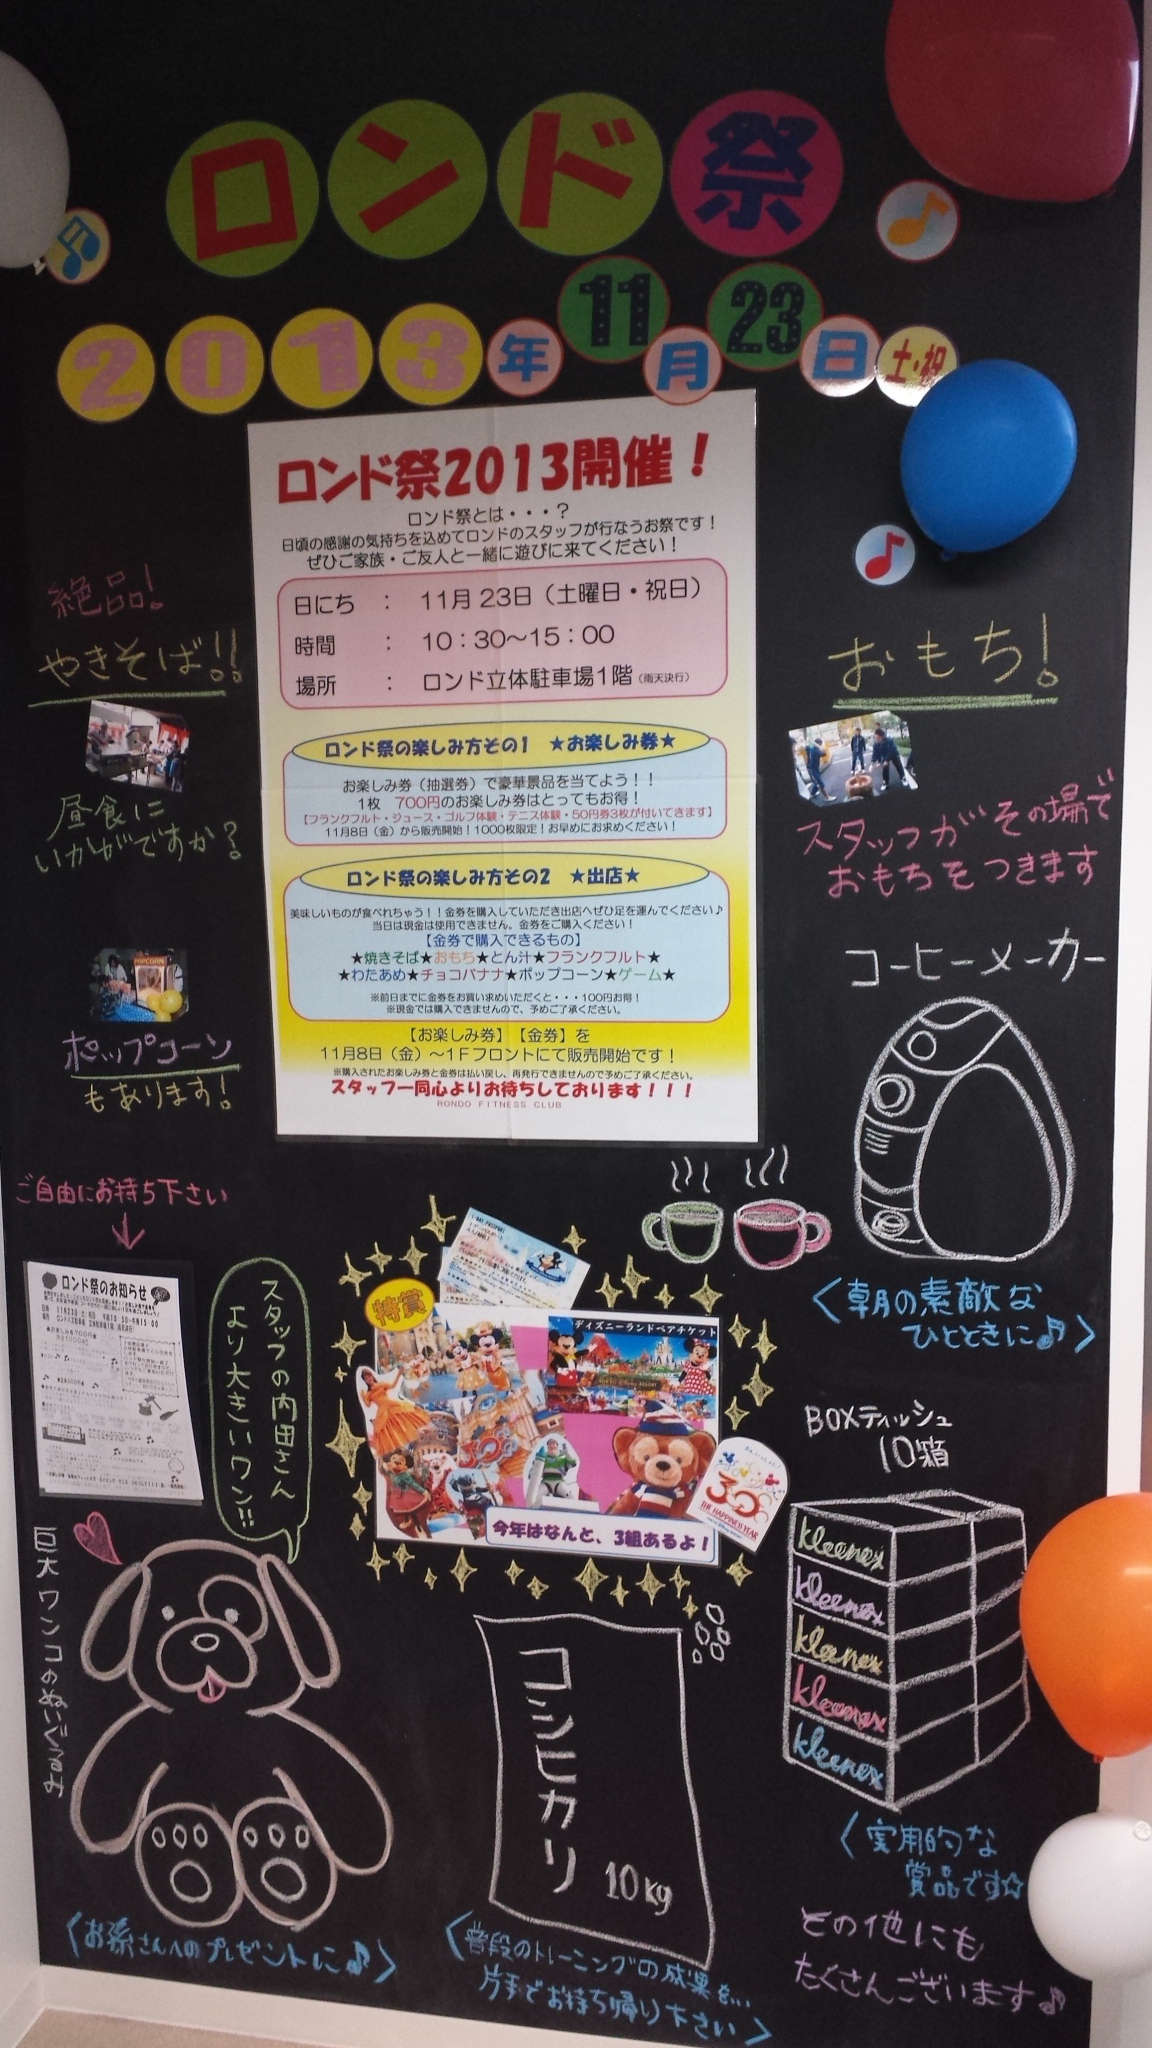 ロンド祭
2013年11月23日土・祝
ロンド祭2013開催！
ロンド祭とは・・・？
日頃の感謝の気持ちを込めてロンドのスタッフが行なうお祭です！
ぜひご家族・ご友人と一緒に遊びに来てください！
日にち ： 11月23日（土曜日・祝日）
時間 ： 10：30～15：00
場所 ： ロンド立体駐車場1階（雨天決行）
ロンド祭の楽しみ方その1 ★お楽しみ券★
お楽しみ券（抽選券）で豪華景品を当てよう！！
1枚 700円のお楽しみ券はとってもお得！
【フランクフルト・ジュース・ゴルフ体験・テニス体験・50円券3枚が付いてきます】
11月8日（金）から販売開始！1000枚限定！お早めにお求めください！
ロンド祭の楽しみ方その2 ★出店★
美味しいものが食べれちゃう！！金券を購入していただき出店へぜひ足を運んでください♪
当日は現金は使用できません。金券をご購入ください！
【金券で購入できるもの】
★焼きそば★おもち★とん汁★フランクフルト★
★わたあめ★チョコバナナ★ポップコーン★ゲーム★
※前日までに金券をお買い求めいただくと・・・100円お得！
※現金では購入できませんので、予めご了承ください。
【お楽しみ券】【金券】を
11月8日（金）～1Fフロントにて販売開始です！
※購入されたお楽しみ券と金券は払い戻し、再発行できませんので予めご了承ください。
スタッフ一同心よりお待ちしております！！！
RONDO FITNESS CLUB
絶品！
やきそば！！
昼食に
いかがですか？
POPCORN
ポップコーン
もあります！
おもち！
スタッフがその場で
おもちをつきます
コーヒーメーカー
〈朝の素敵な
ひとときに♪〉
ご自由にお持ち下さい
ロンド祭のお知らせ
スタッフの内田さん
より大きいワン！！
特賞
ディズニーランドペアチケット
30
THE HAPPINESS YEAR
今年はなんと、3組あるよ！
BOXティッシュ
10箱
kleenex
kleenex
kleenex
kleenex
kleenex
〈実用的な
賞品です☆
その他にも
たくさんございます♪
巨大ワンコのぬいぐるみ
〈お孫さんへのプレゼントに♪〉
コシヒカリ
10kg
〈普段のトレーニングの成果を…
片手でお持ち帰り下さい〉